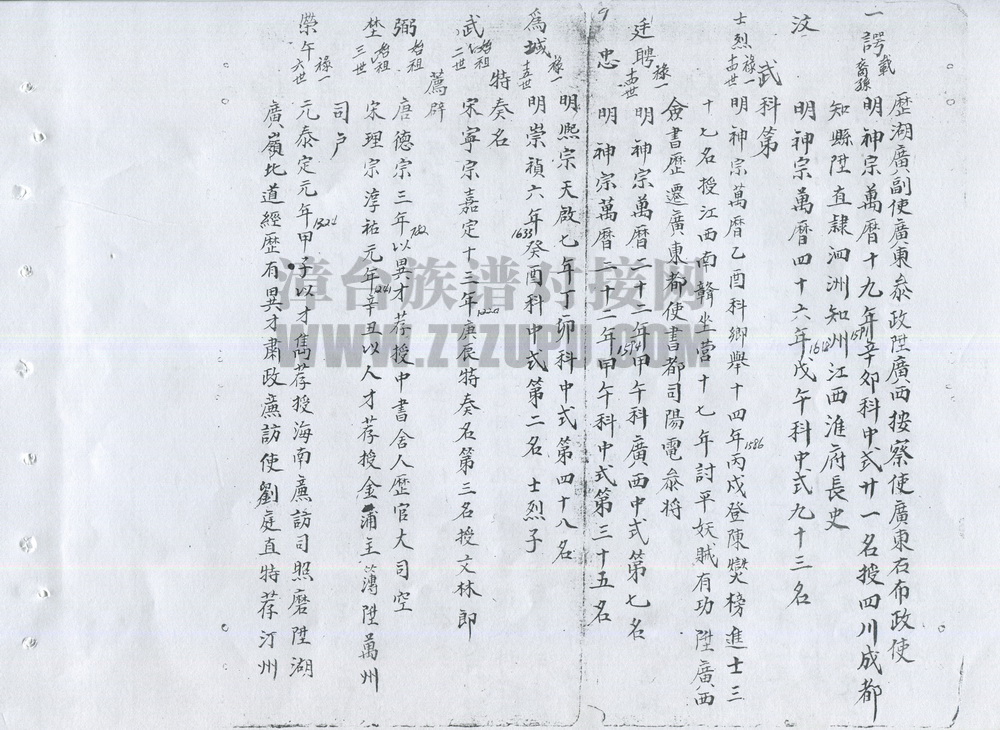 歷湖廣副使廣東叅政陞廣西按察使廣東右布政使
一諤 載裔孫 明神宗萬曆十九年辛夘科中式廿一名授四川成都
1591
知縣陞直隸泗洲知州江西淮府長史
汶 明神宗萬曆四十六年戊午科中式九十三名
1618
武科第
士烈 祿一十四世 明神宗萬曆乙酉科鄉舉十四年丙戌登陳燮榜進士三
1586
十七名授江西南贛坐营十七年討平妖賊有功陞廣西
僉書歷遷廣東都使書都司陽電叅将
廷聘 祿一十四世 明神宗萬曆二十二年甲午科廣西中式第七名
1594
忠 明神宗萬曆二十二年甲午科中式第三十五名
9
明熙宗天啟七年丁卯科中式第四十八名
為城 祿一十五世 明崇禎六年癸酉科中式第二名 士烈子
1633
特奏名
武 始祖二世 宋寧宗嘉定十三年庚辰特奏名第三名授文林郎
1220
薦辟
弼 始祖 唐德宗三年以異才荐授中書舍人歷官大司空
782
埜 始祖三世 宋理宗淳祐元年辛丑以人才荐授金浦主簿陞萬州
1241
司户
榮午 祿一六世 元泰定元年甲子以才雋荐授海南亷訪司照磨陞湖
1324
廣嶺北道經歷有異才肅政亷訪使劉庭直特荐汀州
漳台族谱对接网
WWW.ZTZUPU.COM